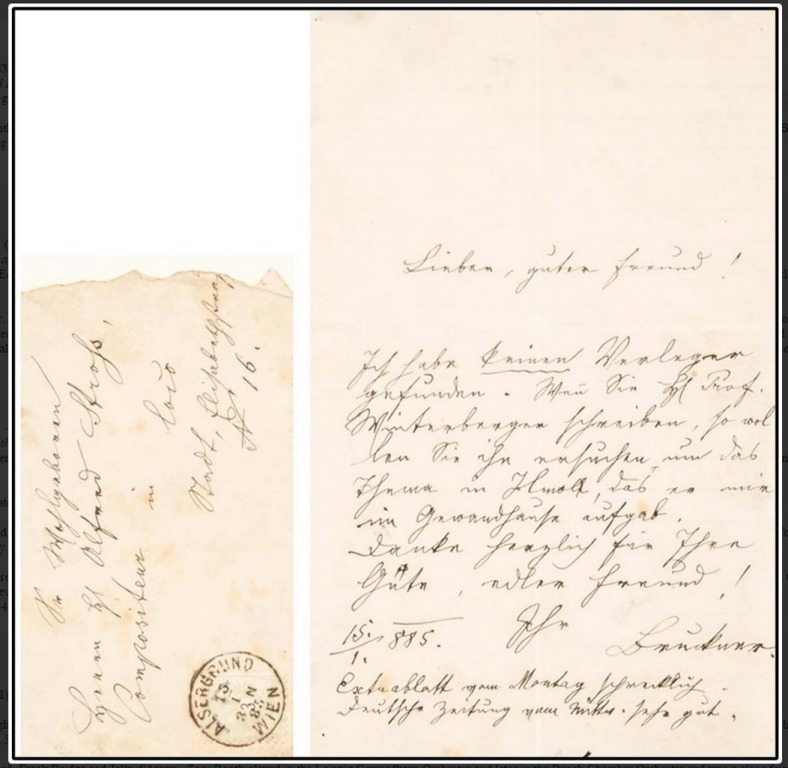 Sr Wohlgeboren
Herrn H Alfred Stroß,
Compositeur
in
loco
Stadt, Elisabethstraß
№ 16.
ALSERGRUND
WIEN
Lieber, guter Freund!
Ich habe keinen Verleger
gefunden. Wen̄ Sie H Prof.
Winterberger schreiben, so wol
len Sie ihn ersuchen um das
Thema in Hmoll, das er mir
im Gewandhause aufgab.
Danke herzlich für Ihre
Güte, edler Freund!
15./1. 885. Ihr
Bruckner.
Extrablatt vom Montag schrecklich.
Deutsche Zeitung vom Mittw. sehr gut.